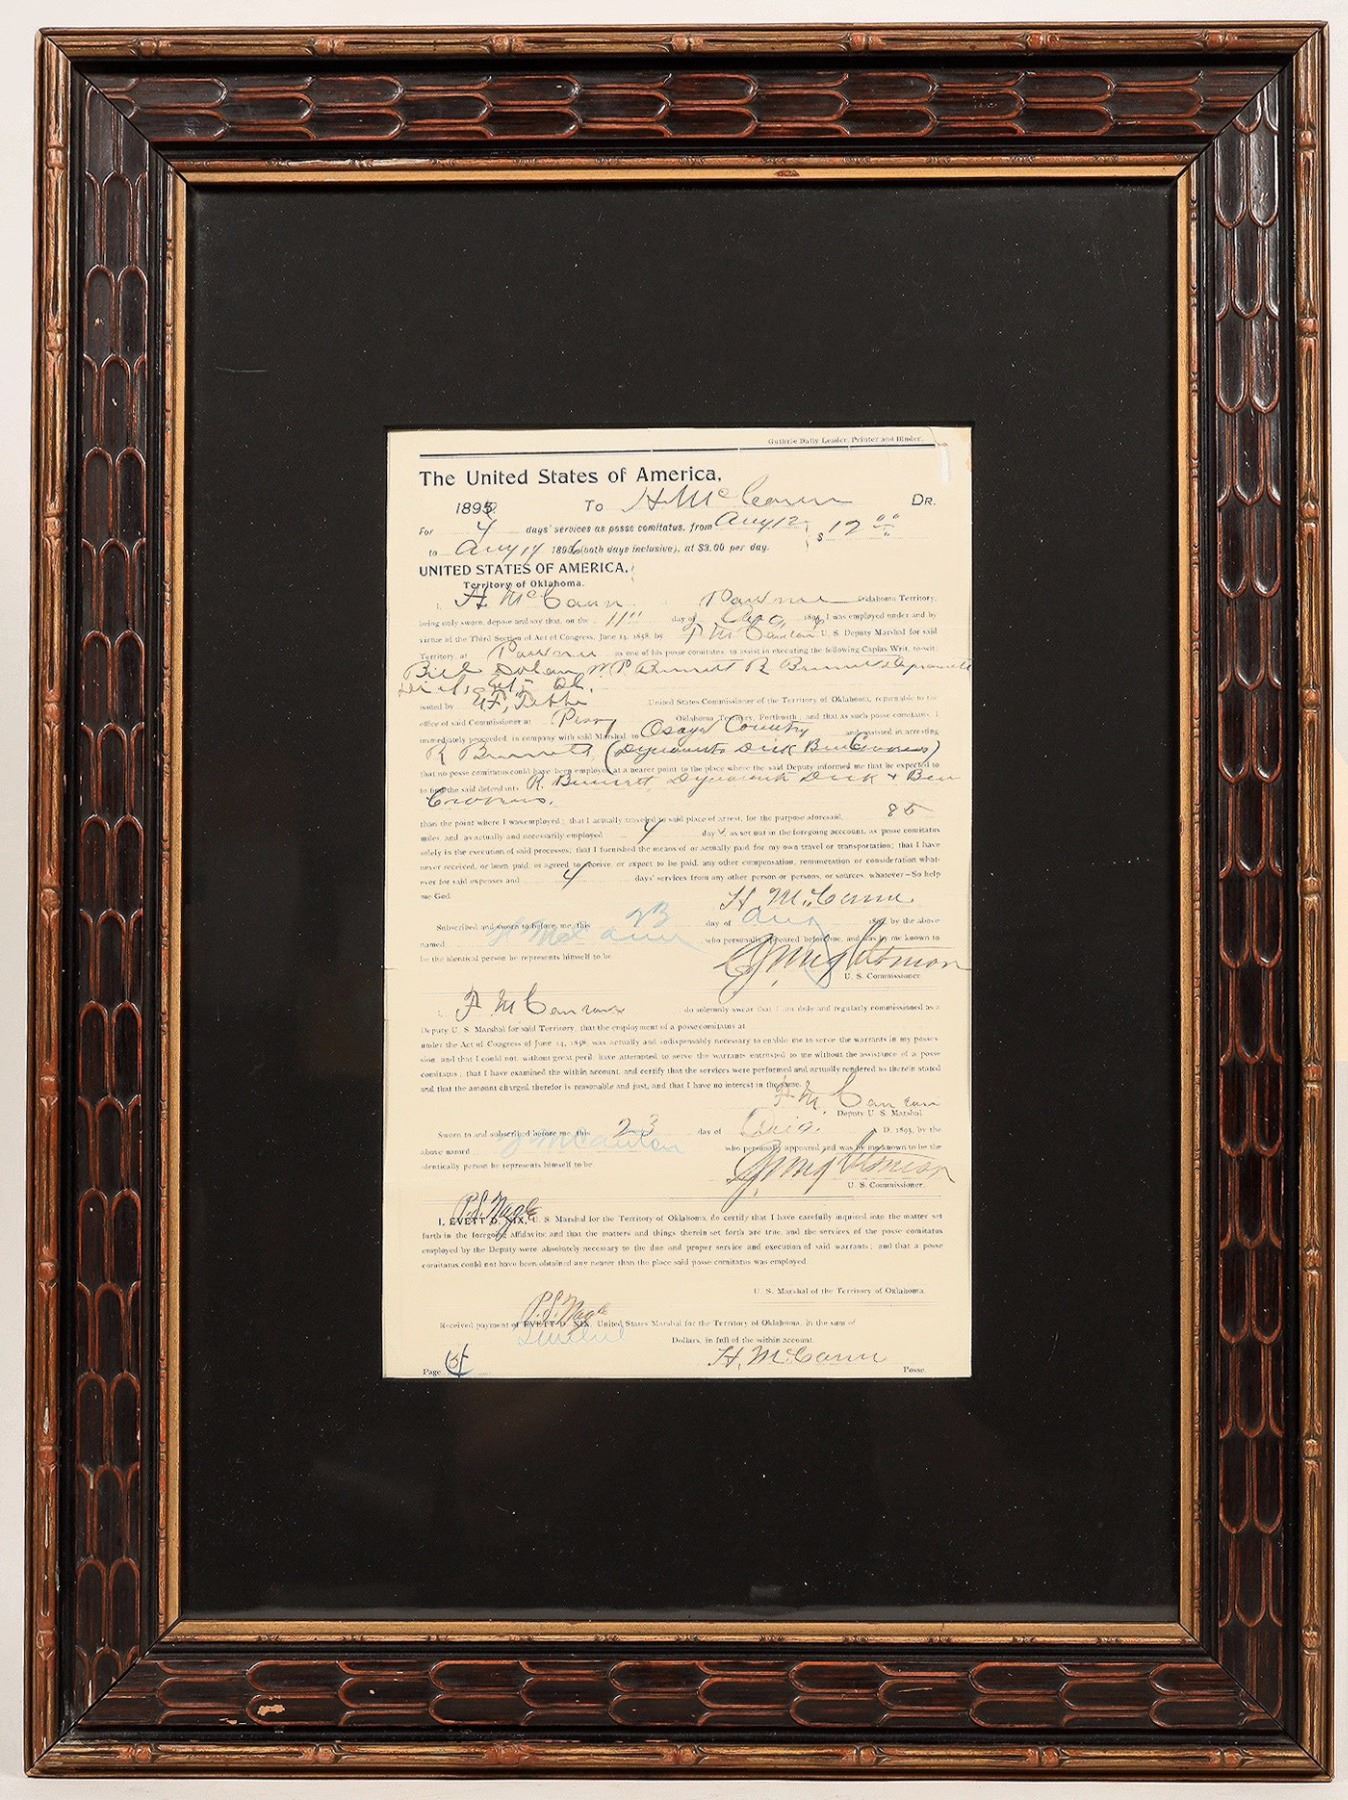 Guthrie Daily Leader, Printer and Binder.
The United States of America,
189 To H McCann DR.
For 4 days' services as posse comitatus, from Aug 12 $12 00
to Aug 14 1896 (both days inclusive), at $3.00 per day.
UNITED STATES OF AMERICA,
Territory of Oklahoma.
I, H. McCann Pawnee Oklahoma Territory,
being duly sworn, depose and say that, on the 11" day of Aug, 1896 I was employed under and by
virtue of the Third Section of Act of Congress, June 14, 1858, by F M Canton U. S. Deputy Marshal for said
Territory, at Pawnee as one of his posse comitatus, to assist in executing the following Capias Writ, to-wit:
Bill Doolan W.P. Bennett R Bennett
Dick et al.
issued by U.S. Commissioner of the Territory of Oklahoma, returnable to the
office of said Commissioner at Perry Oklahoma Territory, Forthwith; and that as such posse comitatus, I
immediately proceeded, in company with said Marshal to Osage Country and assisted in arresting
R Bennett, (Dynamite Dick Ben Cravens)
that no posse comitatus could have been employed at a nearer point to the place where the said Deputy informed me that he expected to
to find the said defendants R. Bennett, Dynamite Dick + Ben
Cravens.
than the point where I was employed; that I actually traveled to said place of arrest, for the purpose aforesaid, 85
miles, and, as actually and necessarily employed 4 days, as set out in the foregoing account, as posse comitatus
solely in the execution of said processes; that I furnished the means of or actually paid for my own travel or transportation; that I have
never received, or been paid, or agreed to receive, or expect to be paid, any other compensation, remuneration or consideration what-
ever for said expenses and 4 days' services from any other person or persons, or sources, whatever—So help
me God.
H. McCann.
Subscribed and sworn to before me, this 23 day of Aug 189 by the above
named H McCann who personally appeared before me, and was by me known to
be the identical person he represents himself to be.
U. S. Commissioner.
I, F M Canton do solemnly swear that I am duly and regularly commissioned as a
Deputy U. S. Marshal for said Territory, that the employment of a posse comitatus at
under the Act of Congress of June 14, 1858, was actually and indispensably necessary to enable me to serve the warrants in my posses-
sion, and that I could not, without great peril, have attempted to serve the warrants entrusted to me without the assistance of a posse
comitatus; that I have examined the within account, and certify that the services were performed and actually rendered as therein stated
and that the amount charged therefor is reasonable and just, and that I have no interest in the same.
F. M. Canton
Deputy U. S. Marshal
Sworn to and subscribed before me, this 23 day of Aug. A. D. 1893, by the
above named F M Canton who personally appeared and was by me known to be the
identically person he represents himself to be.
U. S. Commissioner.
P.S. Nagle
I, EVETT D. NIX, U. S. Marshal for the Territory of Oklahoma, do certify that I have carefully inquired into the matter set
forth in the foregoing Affidavits; and that the matters and things therein set forth are true, and the services of the posse comitatus
employed by the Deputy were absolutely necessary to the due and proper service and execution of said warrants; and that a posse
comitatus could not have been obtained any nearer than the place said posse comitatus was employed.
U. S. Marshal of the Territory of Oklahoma.
P.S. Nagle
Received payment of EVETT D. NIX, United States Marshal for the Territory of Oklahoma, in the sum of
Dollars, in full of the within account.
H. McCann
Page Posse.